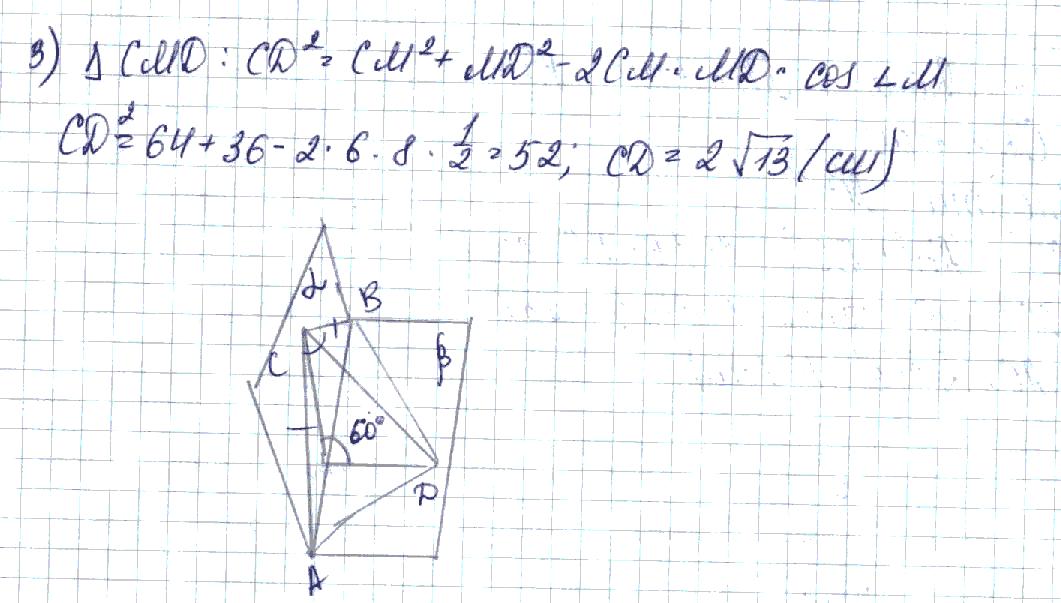 3) Δ CMD : CD² = CM² + MD² - 2CM · MD · cos ∠M
CD² = 64 + 36 - 2 · 6 · 8 · 1/2 = 52; CD = 2√13 (см)
α
B
C
β
60°
D
A